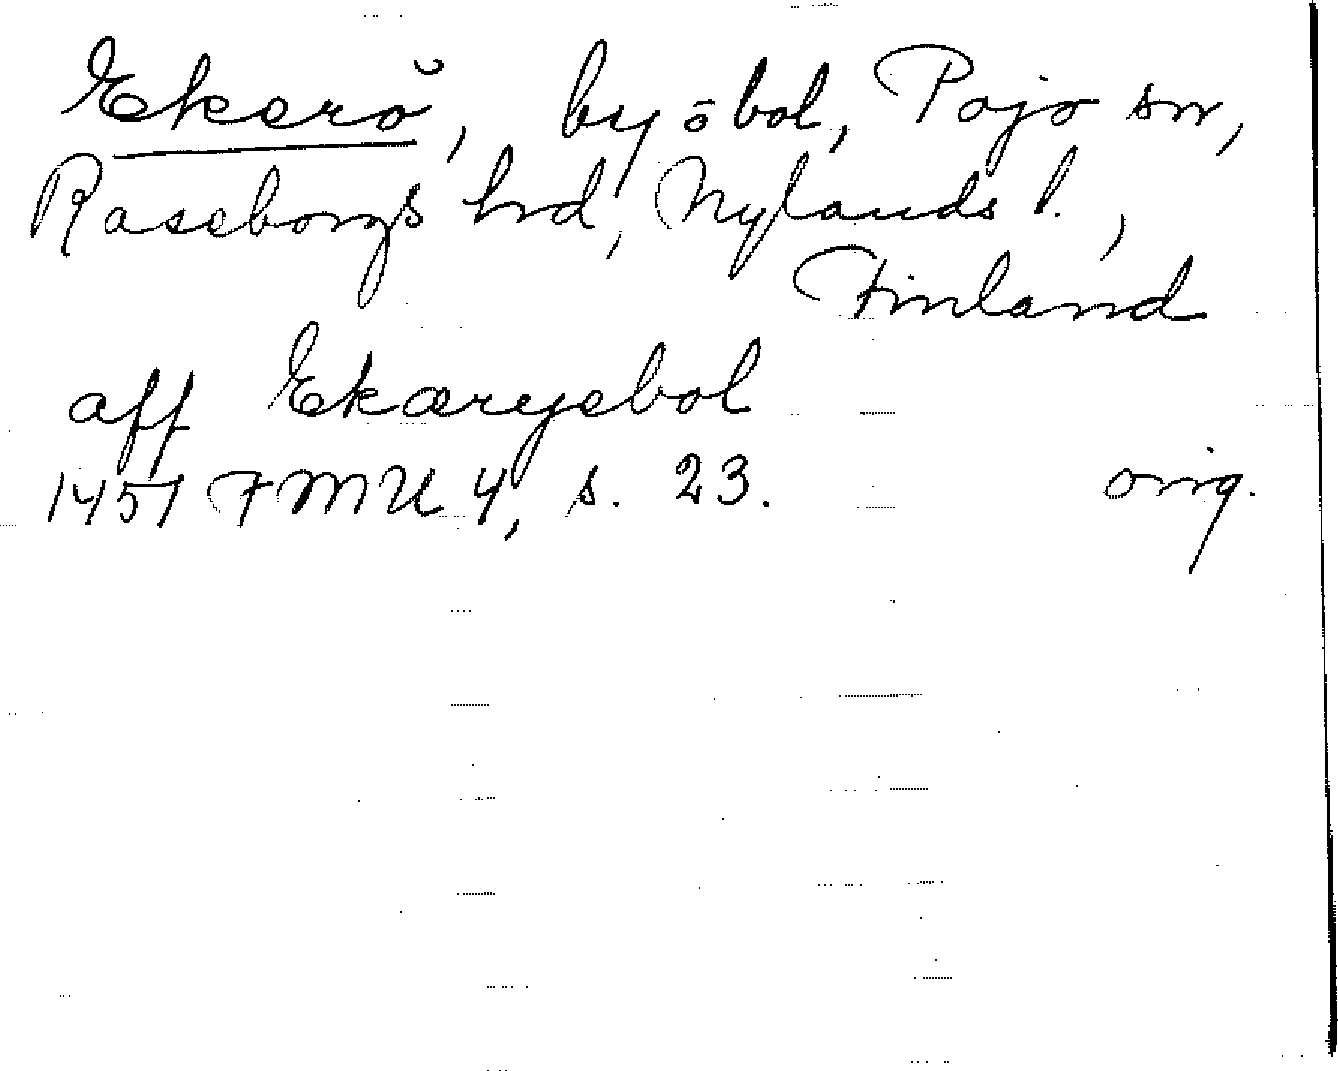 Ekerö, by o bol, Pojo sn,
Raseborgs hrd, Nylands l.,
Finland
aff Ekæryebol
1451 FMU 4, s. 23. orig.